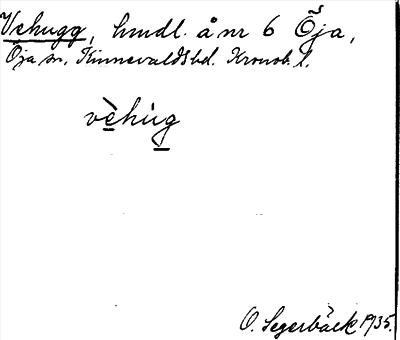 Vehugg, hmdl. å nr 6 Öja,
Öja sn, Kinnevalds hd. Kronob. l.
vèhùg
O. Segerbäck 1935.